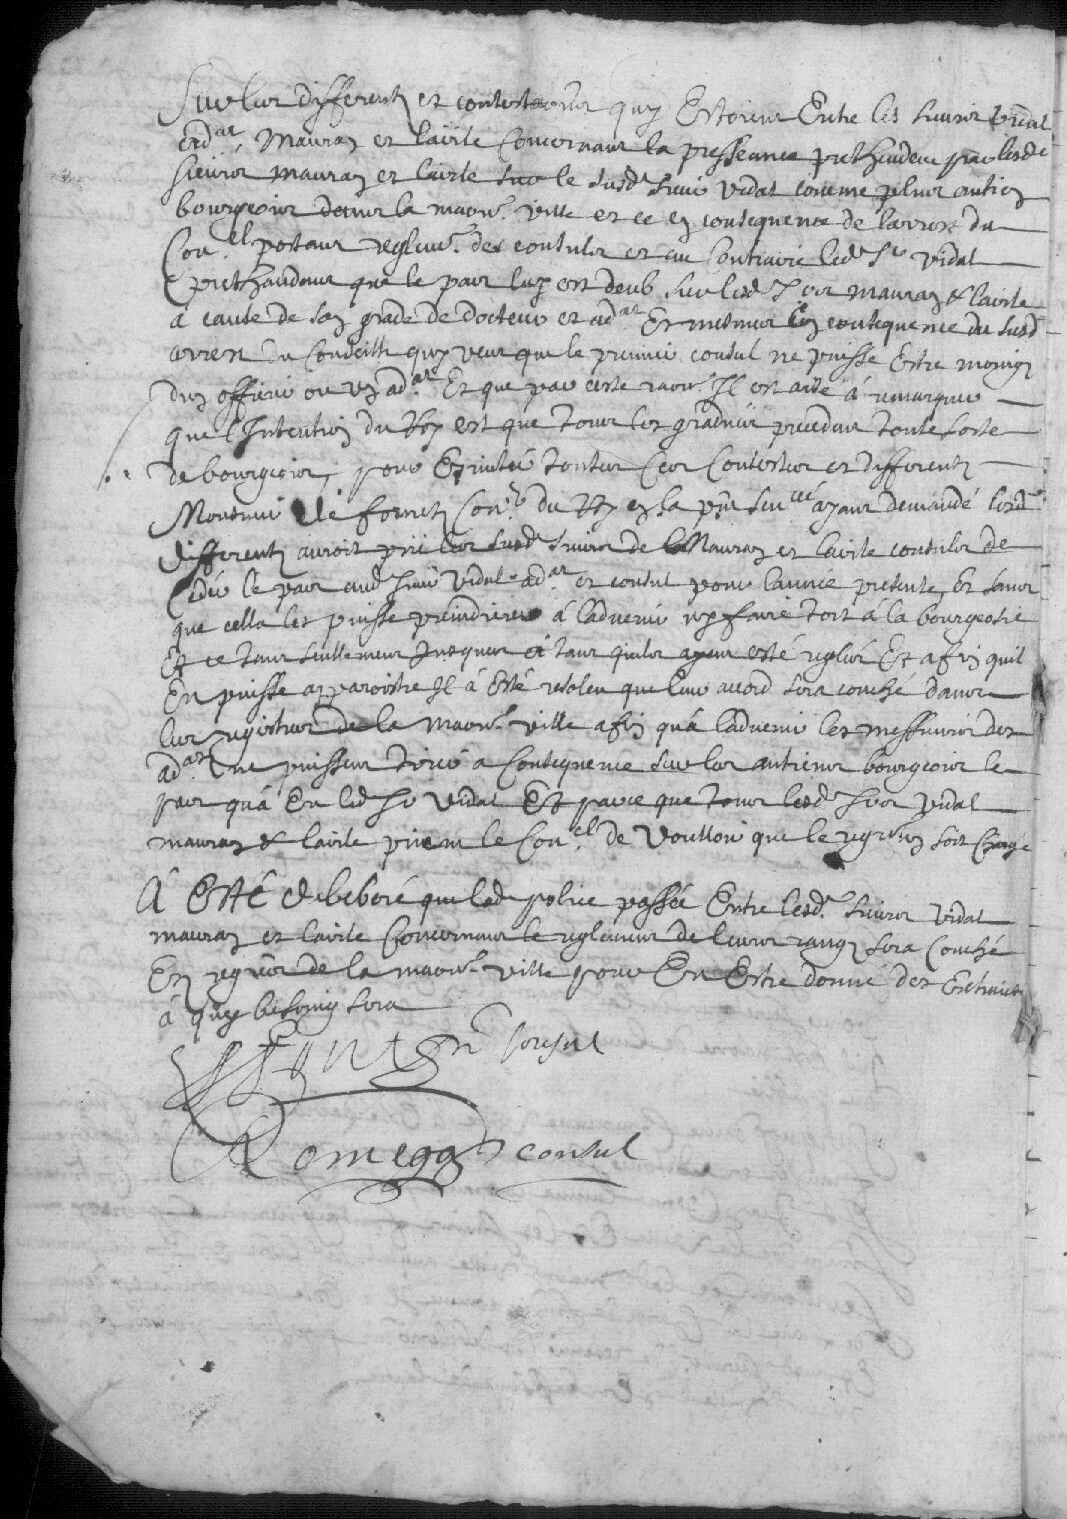 Sur les differentz et contestaons quy Estoient Entre les sieurs Vidal
et ad.at, Mauran et laiste Concernant la presseance prethandeue par lesd.
sieurs mauran et laiste sur le susd. sieur Vidal comme plus antien
bourgeois de la maon.e ville et ce en consequence de larrest du
Con.el portant reglem.t des consulz et au Contraire led. Sr Vidal
prethandant que le pas luy est deub sur lesd. srs mauran & laiste
a cause de son grade de docteur et ad.at Et mesmes En consequence du susd.
arrest du Conseilh quy veut que le premier consul ne puisse Estre moingz
dun officier ou un ad.at Et que par ceste raon. Il est aisé á remarquer
que l'Intention du Roy est que tous les gradués precedent toute sorte
de bourgeois, pour Esviter toutes Ces Contestes et differentz
Monsieur de fornetz Con.er du Roy en la pnt sen.cée ayant demandé lesd.
differentz auroit prié les susd. sieurs de Mauran et laiste consulz de
Ceder le pas aud. sieur Vidal ad.at et consul pour lannée presente, Et sans
que cella les puisse preiudicier á ladvenir ny faire tort á la bourgeosie
Et ce tant seullement Jusques á tant quilz ayent esté reglés Et afin quil
En puisse aparoistre Il á Esté resoleu que leur acord sera couché dans
les registres de la maon.e ville afin quá ladvenir les messieurs des
ad.atz ne puissent tirer a Consequence sur les antiens bourgeois le
pas quá Eu led. Sr Vidal Et parce que tous lesd. Srs Vidal
mauran & laiste prient le Con.el de Voulloir que le regre en soit Chargé
A Esté deliberé que lad. police passée Entre lesd. sieurs Vidal
mauran et laiste Concernant le reglement de leurs rangz sera Couché
En regre de la maon.e ville pour En Estre donné des Extraits
á quy besoing sera
consul
Romegg consul